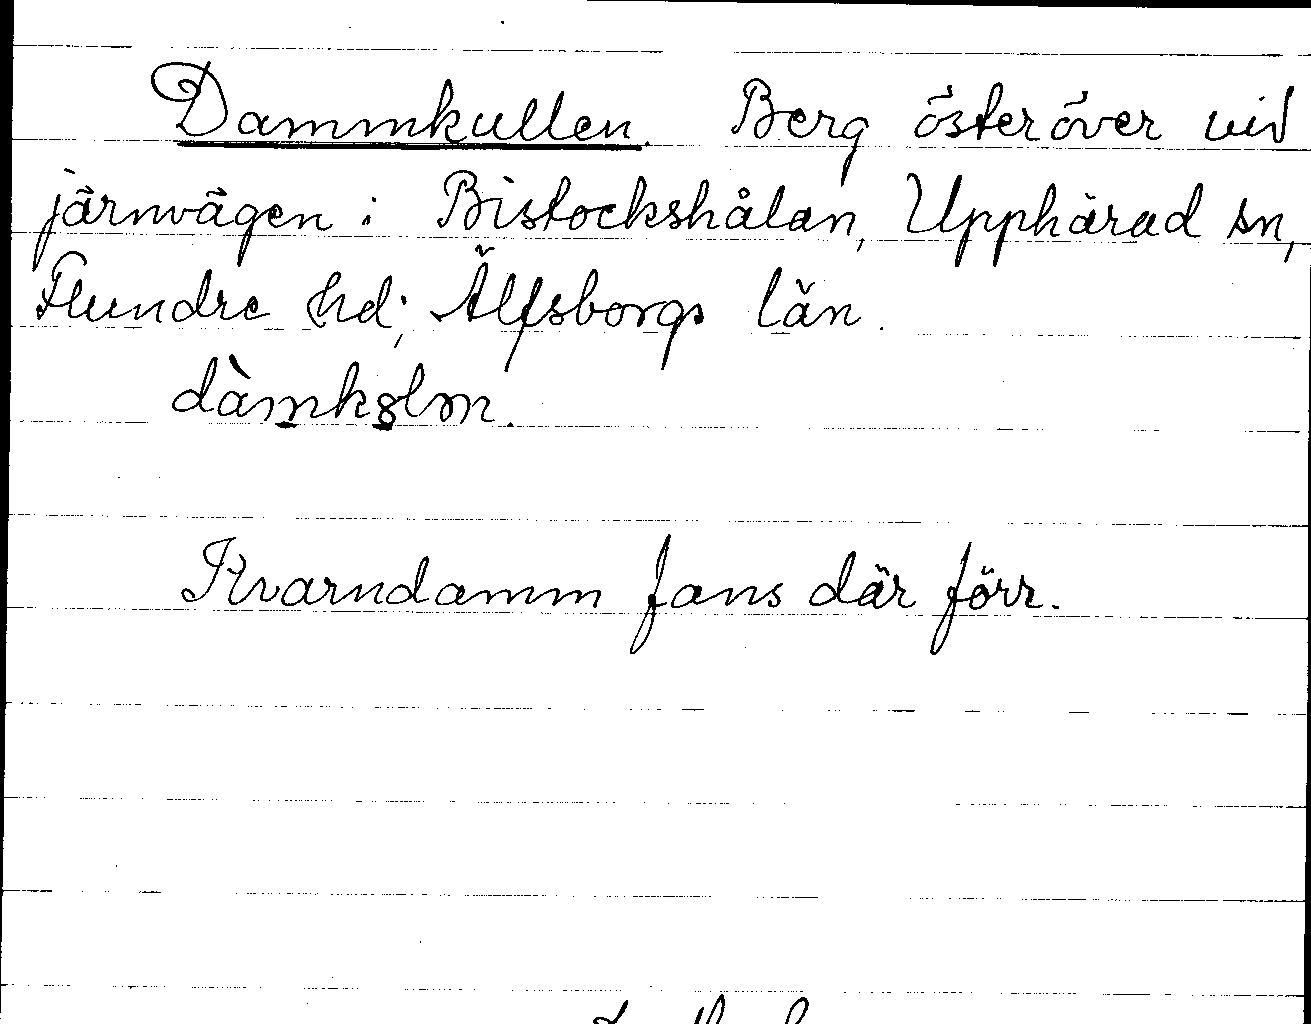 Dammkullen. Berg österöver vid
järnvägen i Bistockshålan, Upphärad sn,
Flundre hd, Älfsborgs län.
dàmkꝸlm.
Kvarndamm fans där förr.